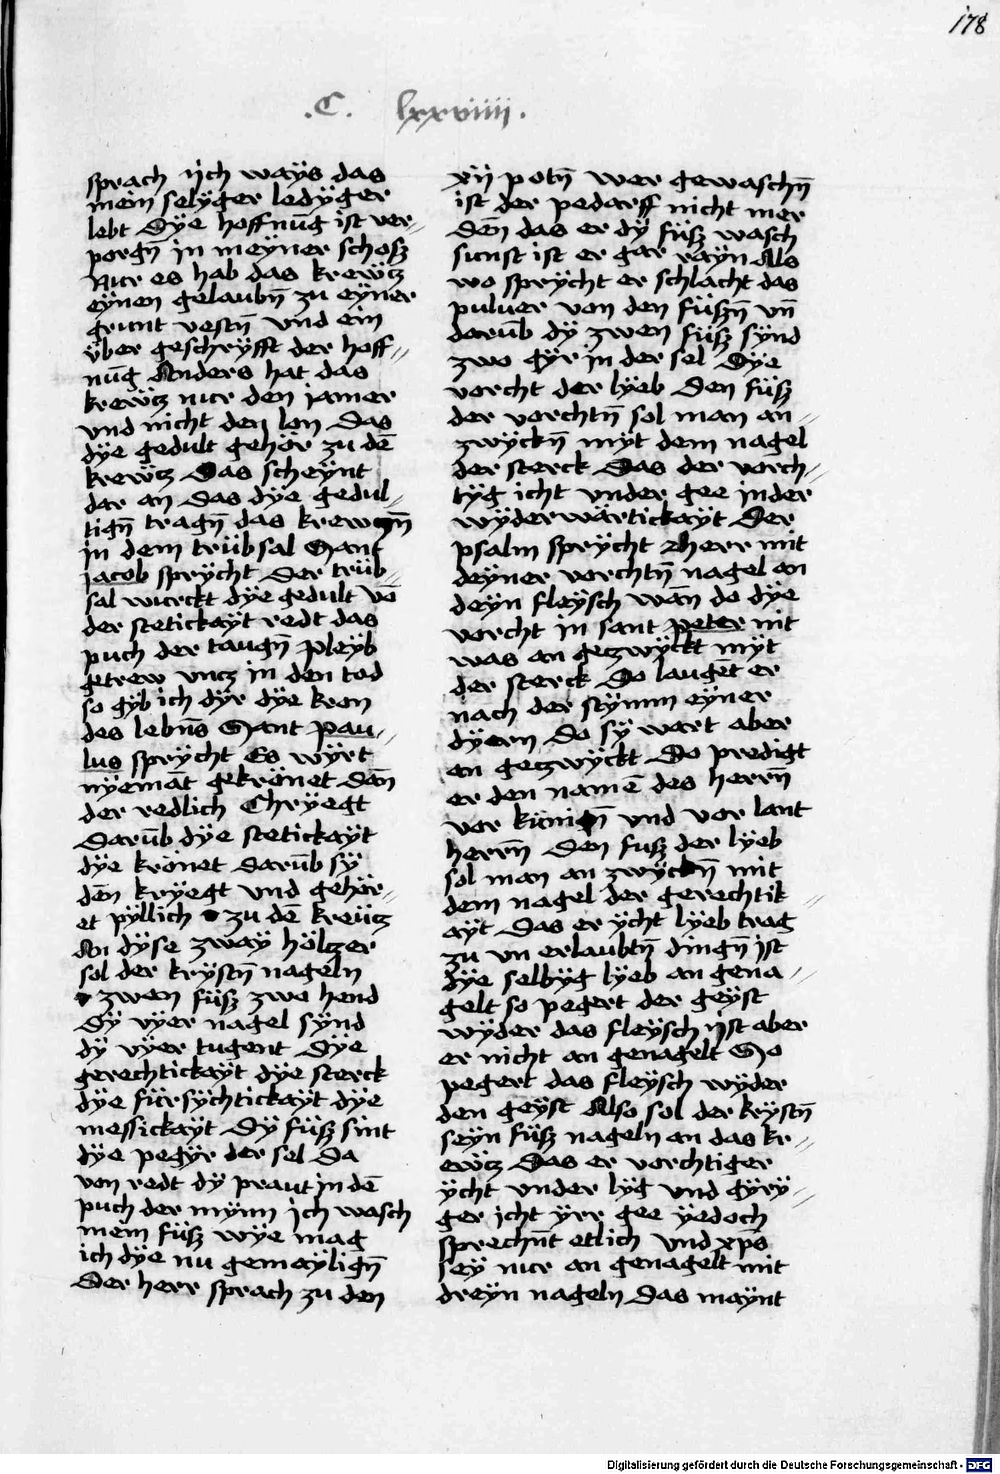 178
.C. lxxviiii.
sprach ijch ways das
mein selÿger ledÿger
lebt Dÿe hoffnūg ist ver-
porgn̄ in meÿner schosz
Nur es hab das krewtz
eÿnen gelaubn̄ zu eÿner
grunt vestn̄ vnd ein
ÿber geschrÿfft der hoff-
nūg Anders hat das
krewtz nur den jamer
vnd nicht den lon Das
dÿe gedult gehör zu dē
krewtz Das scheÿnt
dar an Das dÿe gedul-
tign̄ tragn̄ das
in dem trübsal Sant
jacob sprÿcht Der trüb-
sal wurckt dÿe gedult vō
der stetickaÿt redt das
puch der taugn̄ pleÿb
getrew vncz in den tod
so gÿb ich dÿr dÿe kron
des lebn̄s Sant pau-
lus sprÿcht Es wÿrt
nÿemāt gekrönet dān
der redlich Chrÿegt
Darūb dÿe stetickaÿt
dÿe krönet Darūb sÿ
dēn krÿegt vnd gehör-
et pÿllich zu dē kreütz
An dÿse zwaÿ höltzer
sol der krÿstn̄ nageln
zwen füsz zwo hend
Dÿ vÿer nagel sÿnd
dÿ vÿer tugent Dÿe
gerechtickaÿt dÿe sterck
dÿe fürsÿchtickaÿt dÿe
messickaÿt Dÿ füsz sint
dÿe pegÿr der sel Da
von redt dÿ praut in dē
puch der mÿnn ich wasch
mein füsz wÿe mag
ich dÿe nu gemaÿlign̄
Der herr sprach zu den
xij potn̄ wer gewaschn̄
ist der pedarff nicht mer
Dēn das er dÿ füsz wasch
sunst ist er gar raÿn Als
wo sprÿcht er schlacht das
puluer von den füszn̄ vn̄
darūb dÿ zwen füsz sÿnd
zwo gÿr in der sel Dÿe
vorcht der lÿeb Den füsz
der vorchtn̄ sol man an-
zwÿckn̄ mÿt dem nagel
der sterck Das der vorch-
tÿg icht vnder gee in der
wÿderwärtickaÿt Der
psalm sprÿcht herr mit
deÿner vorchtn̄ nagel an
deÿn fleÿsch wān do dÿe
vorcht in sant peter nit
was an gezwÿckt mÿt
der sterck Do laugēt er
nach der stÿmm eÿner
dÿern Do sÿ wart aber
an gezwÿckt Do predigt
er den namē des herrn̄
vor künign̄ vnd vor lant
herrn̄ Den fusz der lÿeb
sol man an zwÿckn̄ mit
dem nagel der gerechtik-
aÿt Das er ÿcht lÿeb trag
zu vn erlaubtn̄ dingn̄ jst
dÿe selbÿg lÿeb an gena-
gelt so pegert der geÿst
wÿder das fleÿsch ijst aber
er nicht an genagelt So
pegert das fleÿsch wÿder
den geÿst Also sol der krÿstn̄
seÿn füsz nageln an das kr-
ewtz Das er vorchtiger
ÿcht vnder lÿg vnd gÿrÿ-
ger icht ÿrr gee ÿedoch
sprechn̄t etlich vnd xp̄s
seÿ nur an genagelt mit
dreÿn nageln Das maÿnt
Digitalisierung gefördert durch die Deutsche Forschungsgemeinschaft - DFG